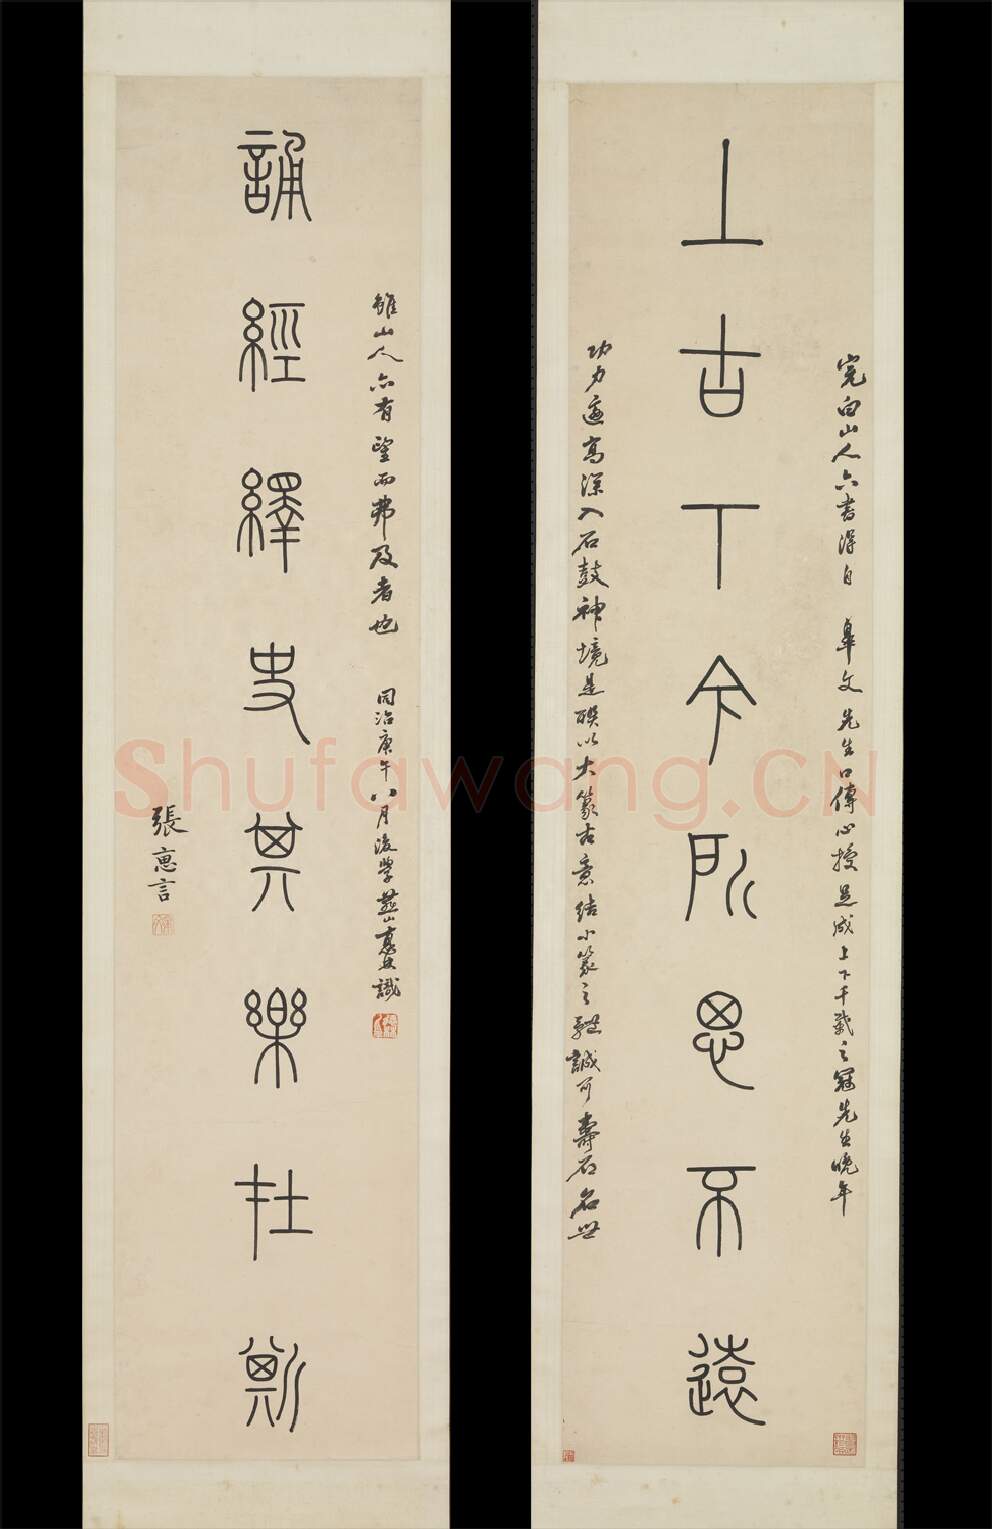 完白山人六書得自 皋文先生口傳心授是成上下千載之冠先生晚年
上古下今所思不遠
功力高深入石鼓神境是聯以大篆古意結小篆之體誠可壽石名世
雖山人亦有望而弗及者也 同治庚午八月後學燕山識
誦經繹史其樂在斯
張惠言
Shufawang.CN